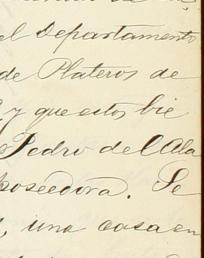 el Departamento
de Plateros de
y que estos bie
Pedro del Ala
poseedora. Se
una casa en